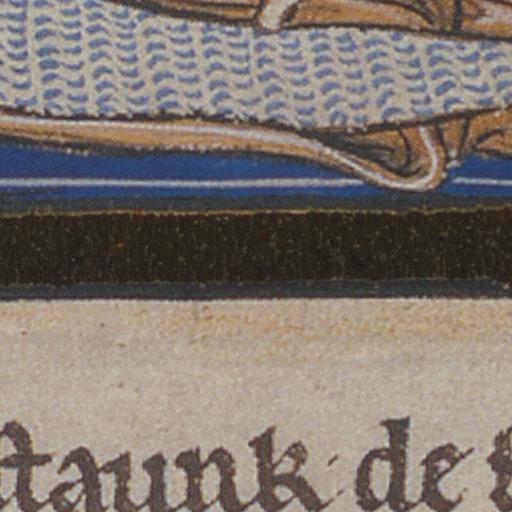 staunk· de